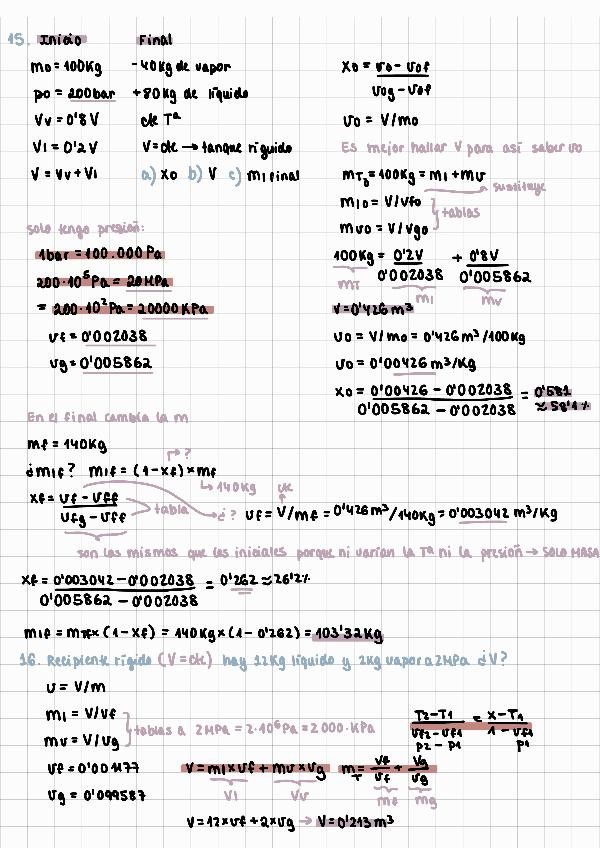 15. Inicio Final
m0 = 100Kg - 40Kg de vapor
p0 = 200bar + 80Kg de líquido
Vv = 0'8V cte Tª
Vl = 0'2V V = cte → tanque rígido
V = Vv + Vl a) X0 b) V c) ml final
X0 = v0 - v0f / v0g - v0f
v0 = V/m0
Es mejor hallar V para así saber v0
mT0 = 100Kg = ml + mv
sustituye
ml0 = V/vf0
mv0 = V/vg0
tablas
100Kg = 0'2V / 0'002038 + 0'8V / 0'005862
mT ml mv
V = 0'426 m³
v0 = V/m0 = 0'426 m³/100Kg
v0 = 0'00426 m³/Kg
X0 = 0'00426 - 0'002038 / 0'005862 - 0'002038 = 0'581
≈ 58'1%
solo tengo presión:
1bar = 100.000 Pa
200·10⁵Pa = 20MPa
= 200·10²Pa = 20000KPa
vf = 0'002038
vg = 0'005862
En el final cambia la m
mf = 140Kg
¿mlf? mlf = (1-xf) × mf
?
140Kg cte
xf = vf - vff / vfg - vff tabla ¿? vf = V/mf = 0'426m³/140Kg = 0'003042 m³/Kg
son las mismas que las iniciales porque ni varían la Tª ni la presión → SOLO MASA
xf = 0'003042 - 0'002038 / 0'005862 - 0'002038 = 0'262 ≈ 26'2%
mlf = mf × (1-xf) = 140Kg × (1-0'262) = 103'32Kg
16. Recipiente rígido (V=cte) hay 12Kg líquido y 2Kg vapor a 2MPa ¿V?
v = V/m
ml = V/vf
mv = V/vg
tablas a 2MPa = 2·10⁶Pa = 2000·KPa
T2-T1 / vf2-vf1 = x-T1 / 1-vf1
p2 - p1 p1
vf = 0'001177
vg = 0'099587
V = ml × vf + mv × vg
Vl Vv
mT = Vf / vf + Vg / vg
mf mg
V = 12×vf + 2×vg → V = 0'213 m³